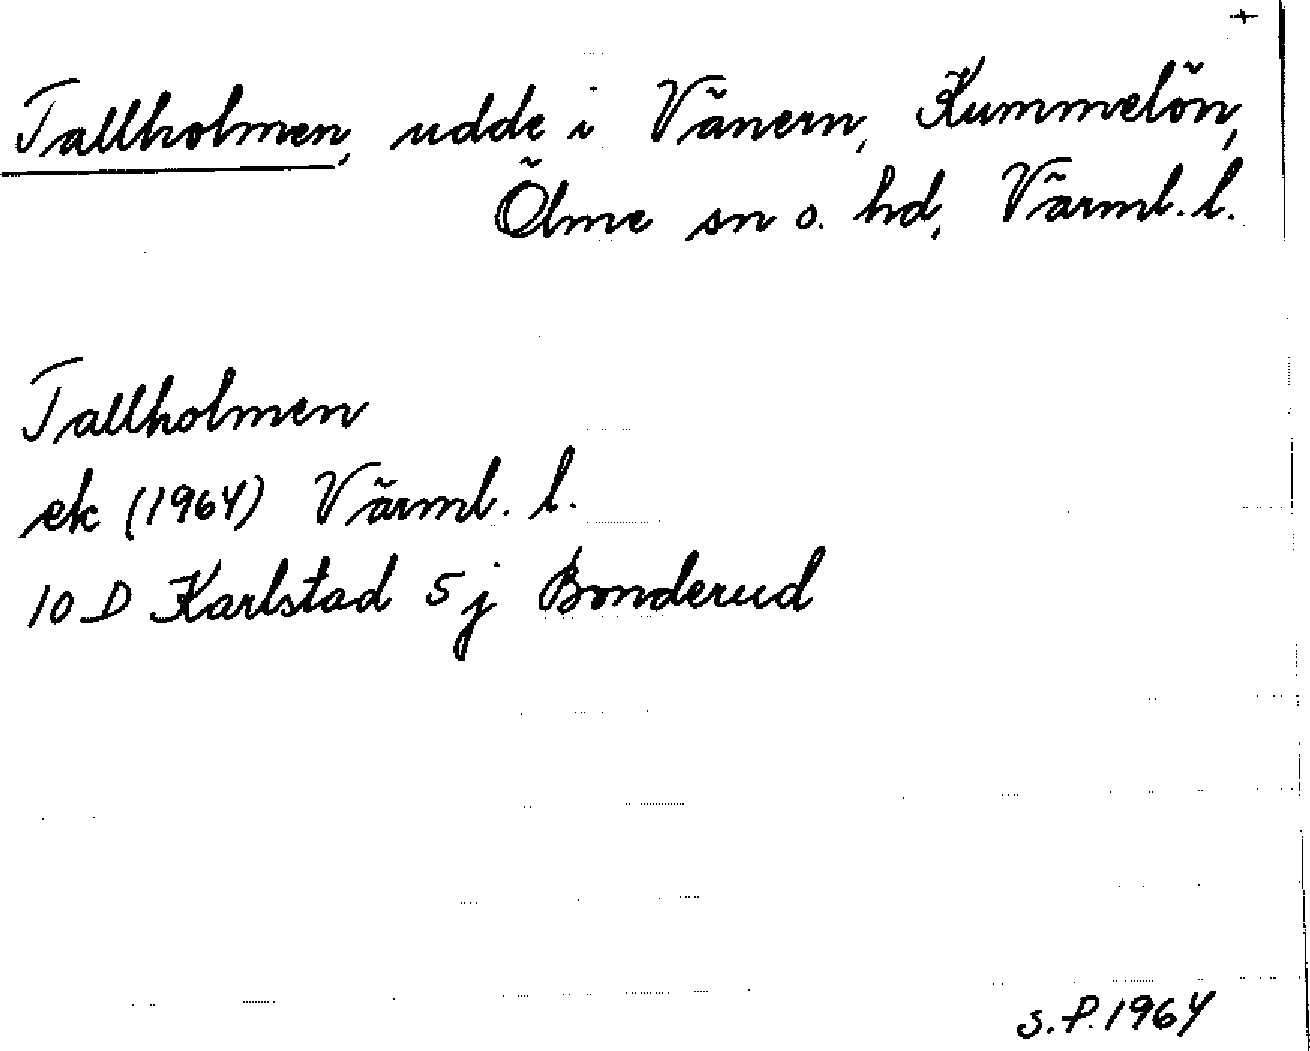 +
Tallholmen, udde i Vänern, Kummelön,
Ölme sn o. hd, Värml. l.
Tallholmen
ek (1964) Värml. l.
10 D Karlstad 5 j Bonderud
s. P. 1964